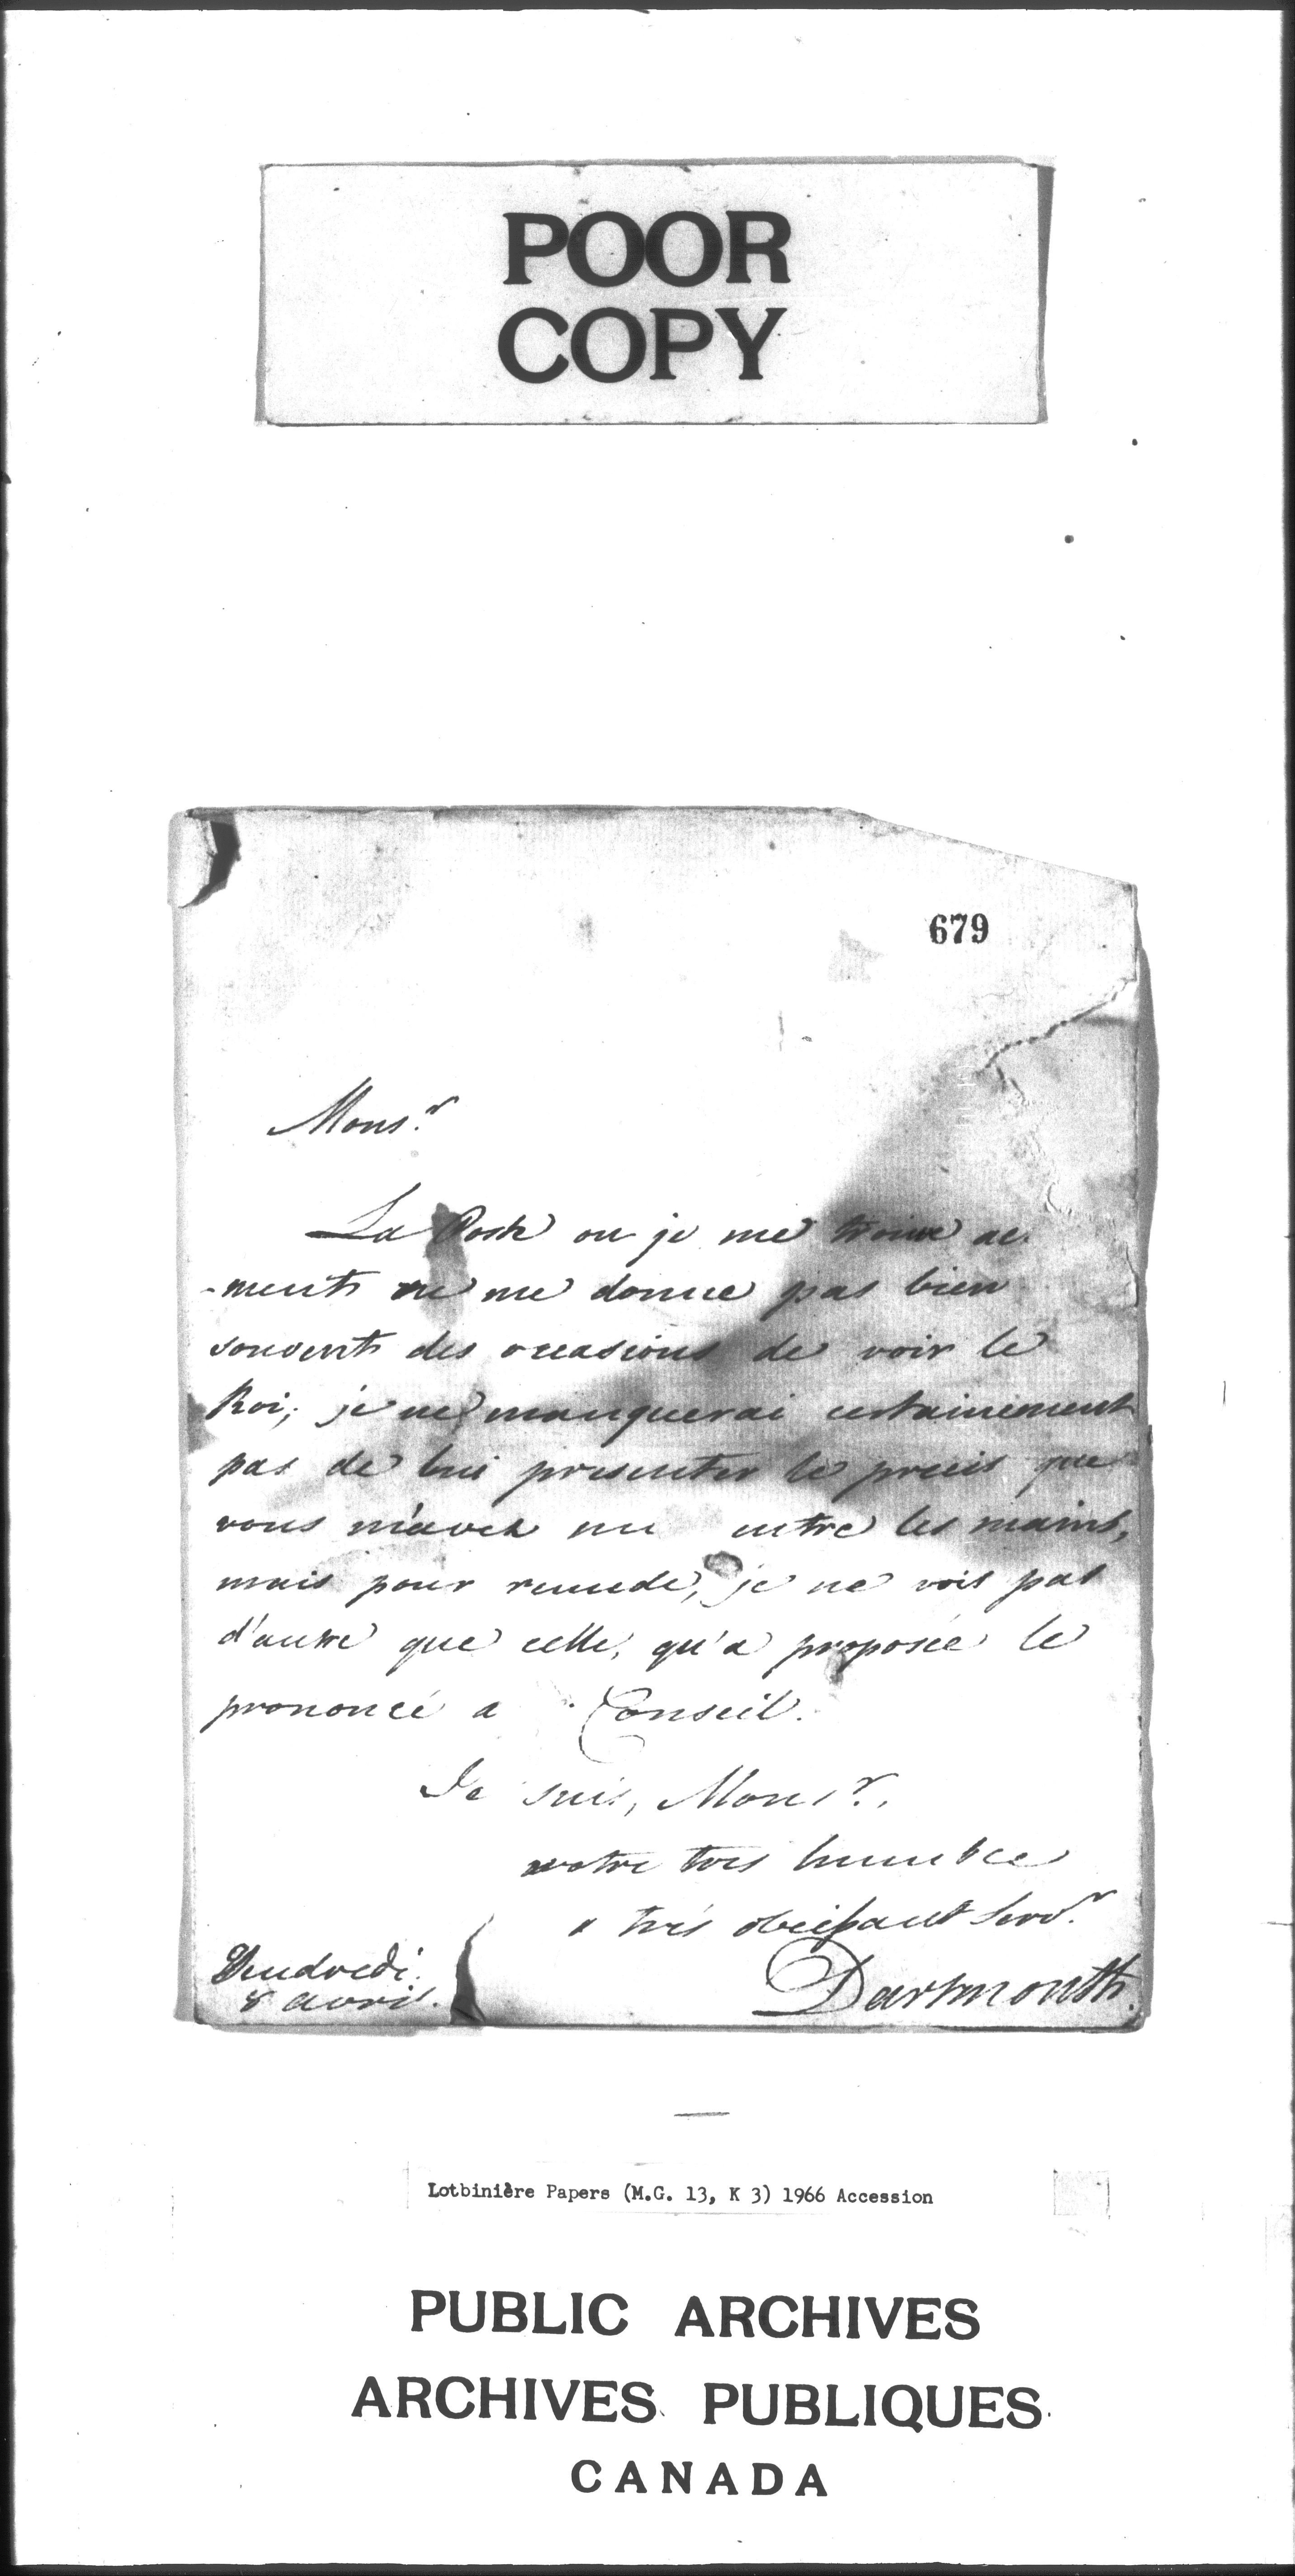 POOR
COPY
679
Mons.r
La Poste ou je me trouve ac
-ments ne me donne pas bien
souvents des occasions de voir le
Roi; je ne manquerai certainement
pas de lui presenter le precis que
vous m'avez mi entre les mains,
mais pour remede, je ne vois pas
d'autre que celle, qu'a proposée le
prononcé a Conseil.
Je suis, Mons.r,
votre tres humble
& très obeissant Serv.r
Dartmouth.
Vendredi.
8 avril.
Lotbinière Papers (M.G. 13, K 3) 1966 Accession
PUBLIC ARCHIVES
ARCHIVES PUBLIQUES
CANADA